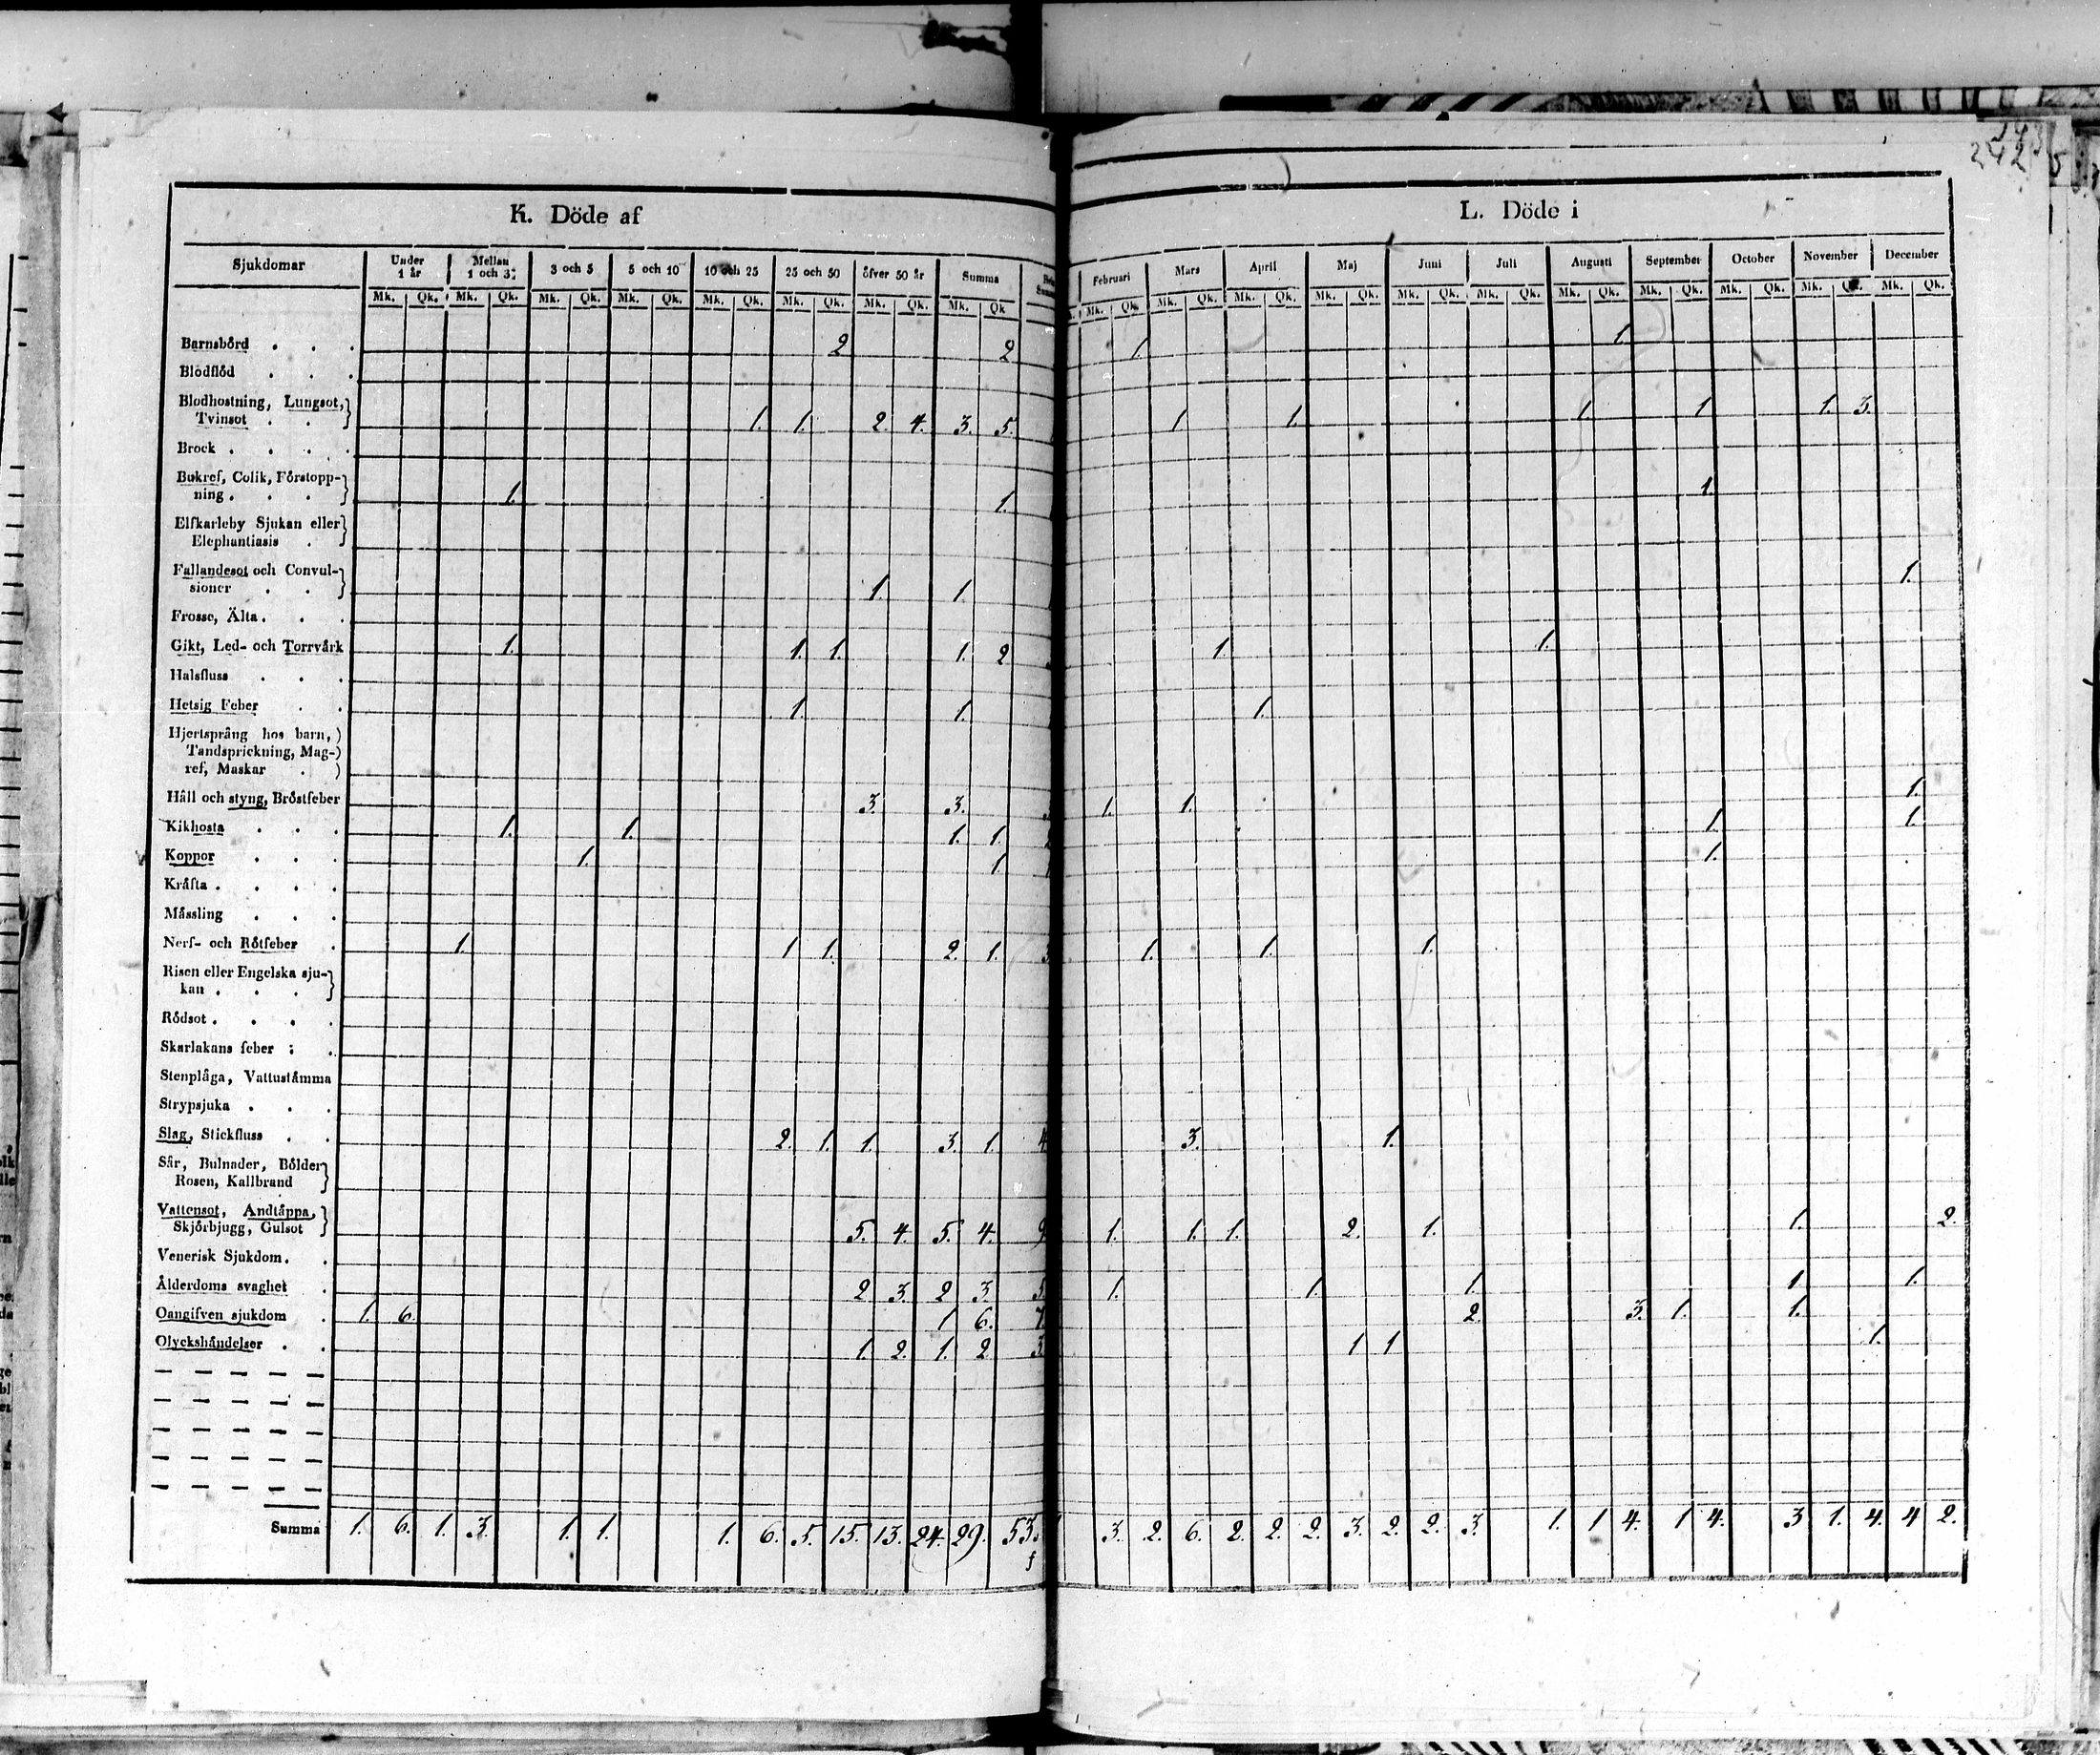 242
K. Döde af
Sjukdomar Under 1 år Mellan 1 och 3 3 och 5 5 och 10 10 och 25 25 och 50 öfver 50 år Summa
Mk. Qk. Mk. Qk. Mk. Qk. Mk. Qk. Mk. Qk. Mk. Qk. Mk. Qk. Mk. Qk
Barnsbörd . . . 2 2
Blodflöd . . .
Blodhostning, Lungsot,
Tvinsot . . 1. 1. 2. 4. 3. 5.
Brock . . . .
Bukref, Colik, Förstopp-
ning . . . 1. 1.
Elfkarleby Sjukan eller
Elephantiasis .
Fallandesot och Convul-
sioner . . 1. 1.
Frosse, Älta . . .
Gikt, Led- och Torrvärk 1. 1. 1. 1. 2
Halsfluss . . .
Hetsig Feber . . 1. 1.
Hjertsprång hos barn,
Tandsprickning, Mag-
ref, Maskar .
Håll och styng, Bröstfeber 3. 3.
Kikhosta . . . 1. 1. 1. 1.
Koppor . . . 1. 1.
Kräfta . . . .
Mässling . . .
Nerf- och Rötfeber . 1. 1 1. 2. 1.
Risen eller Engelska sju-
kan . . .
Rödsot . . . .
Skarlakans feber : .
Stenplåga, Vattustämma
Strypsjuka . . .
Slag, Stickfluss . . 2. 1. 1. 3. 1. 4
Sår, Bulnader, Bölder
Rosen, Kallbrand
Vattensot, Andtäppa,
Skjörbjugg, Gulsot 5. 4. 5. 4. 9
Venerisk Sjukdom . .
Ålderdoms svaghet . 2 3. 2 3. 5
Oangifven sjukdom . 1. 6. 1 6. 7
Olyckshändelser . . 1. 2. 1. 2 3.
Summa 1. 6. 1. 3. 1. 1. 1. 6. 5. 15. 13. 24. 29. 53.
L. Döde i
Februari Mars April Maj Juni Juli Augusti September October November December
Mk. Qk. Mk. Qk. Mk. Qk. Mk. Qk. Mk. Qk. Mk. Qk. Mk. Qk. Mk. Qk. Mk. Qk. Mk. Qk. Mk. Qk.
1. 1
1 1. 1. 1 1. 3.
1.
1.
1. 1.
1.
1.
1. 1.
1. 1.
1.
1. 1. 1.
3. 1.
1. 1. 1. 2. 1. 1. 2.
1. 1. 1. 1 1.
2. 3. 1. 1.
1 1 1.
3. 2. 6. 2. 2. 2. 3. 2. 2. 3. 1. 1 4. 1 4. 3 1. 4. 4 2.